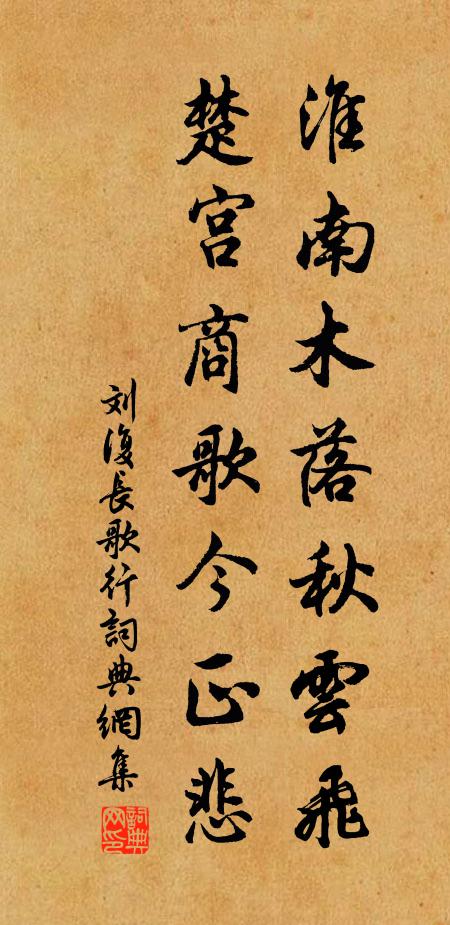 淮南木落秋雲飛
楚宮商歌今正悲
刘復長歌行詞典網集
詞典網印